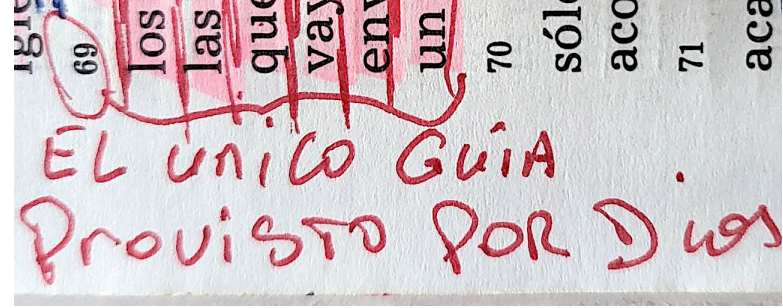 69
los
las
que
vay
env
un
70
sólo
aco
71
aca
EL UNICO GUIA
PROVISTO POR Dios